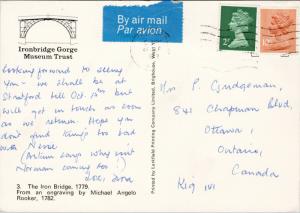 Ironbridge Gorge
Museum Trust
By air mail
Par avion
Looking forward to seeing
you – we shall be at
Stratford till Oct. so
will get in touch as soon
as we return. Hope you
don't find things too bad
with
says why isn't
Norman coming too!)
Love,
3. The Iron Bridge, 1779.
From an engraving by Michael Angelo
Rooker, 1782.
Printed by Leatfield Printing Company Limited,
Mrs P. Gudgeman,
842 Chapman Blvd,
Ottawa,
Ontario,
Canada
K1G 1V1